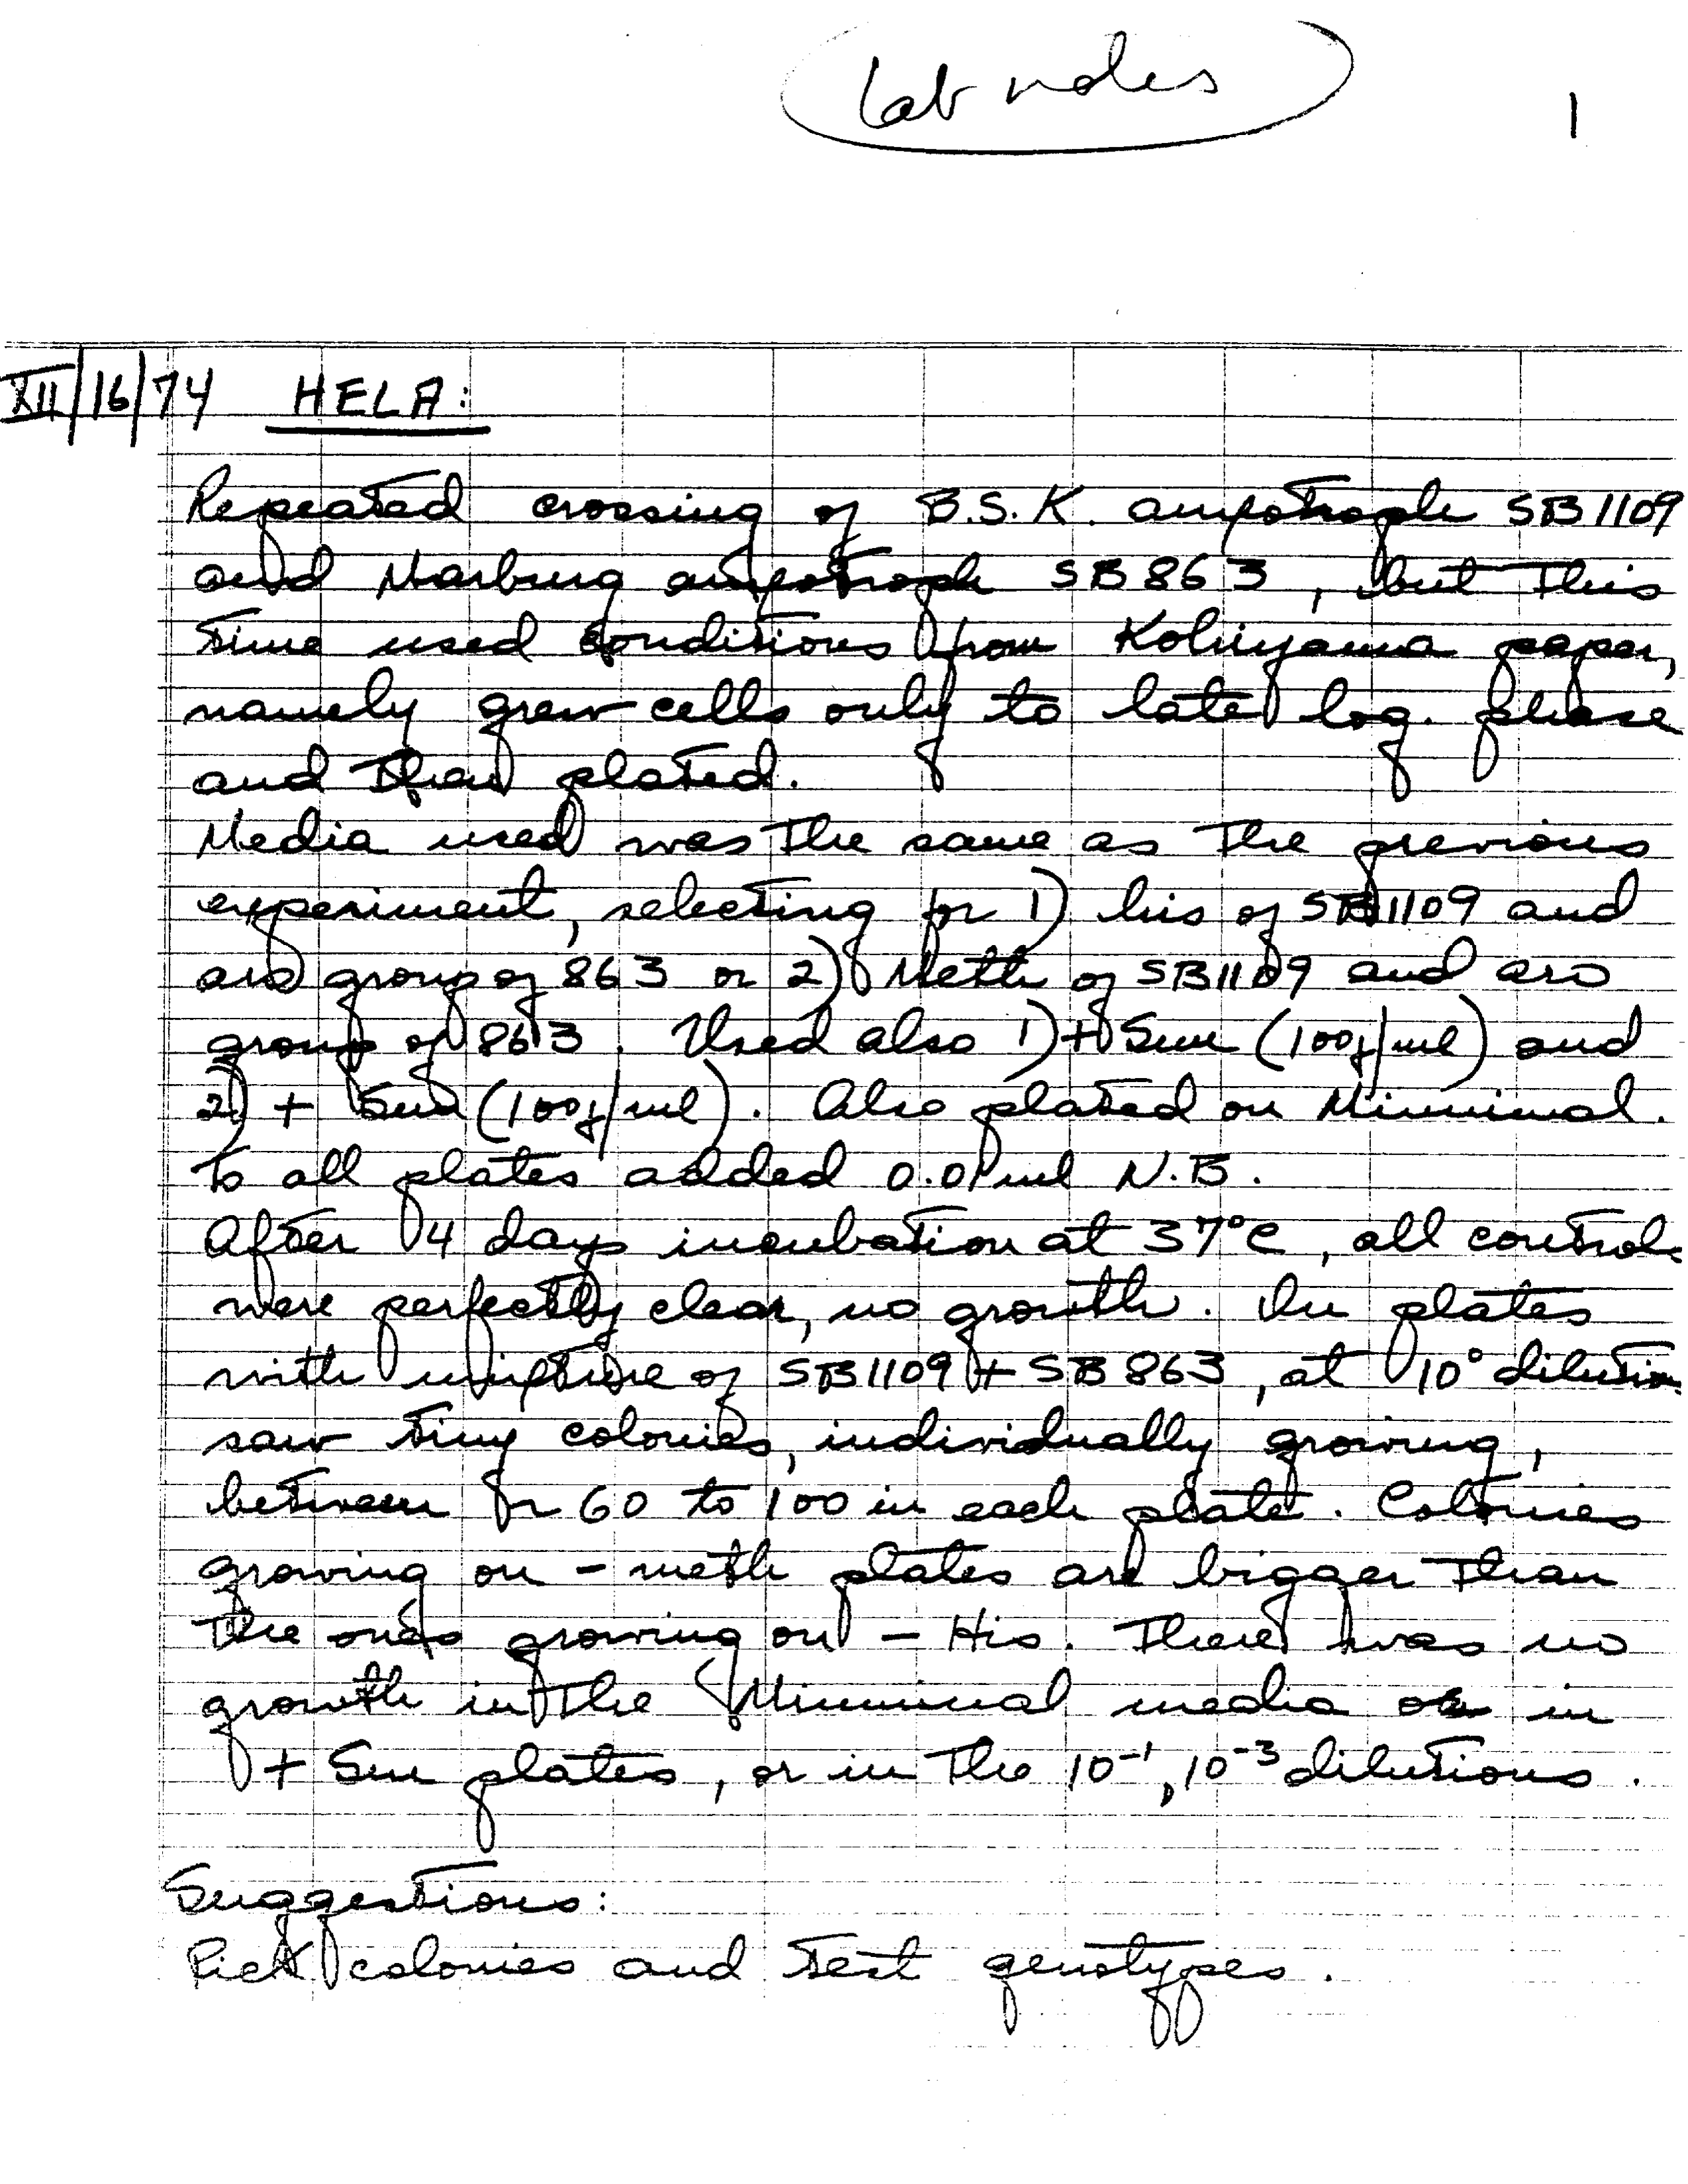 Lab notes
1
XII/16/74 HELA:
Repeated crossing of B.S.K. auxotroph SB1109
and Marburg auxotroph SB863, but this
time used conditions from Kohiyama paper,
namely grew cells only to late log. phase
and then plated.
Media used was the same as the previous
experiment, selecting for 1) his of SB1109 and
aro group of 863 or 2) Meth of SB1109 and aro
group of 863. Used also 1) + Sm (100γ/ml) and
2) + Sm (100γ/ml). Also plated on Minimal.
To all plates added 0.01 ml N.B.
After 4 days incubation at 37°C, all controls
were perfectly clear, no growth. In plates
with mixture of SB1109 + SB863, at 10° dilution
saw tiny colonies, individually growing,
between 60 to 100 in each plate. Colonies
growing on - meth plates are bigger than
the ones growing on - His. There was no
growth in the Minimal media or in
+ Sm plates, or in the 10⁻¹, 10⁻³ dilutions.
Suggestions:
Pick colonies and test genotypes.